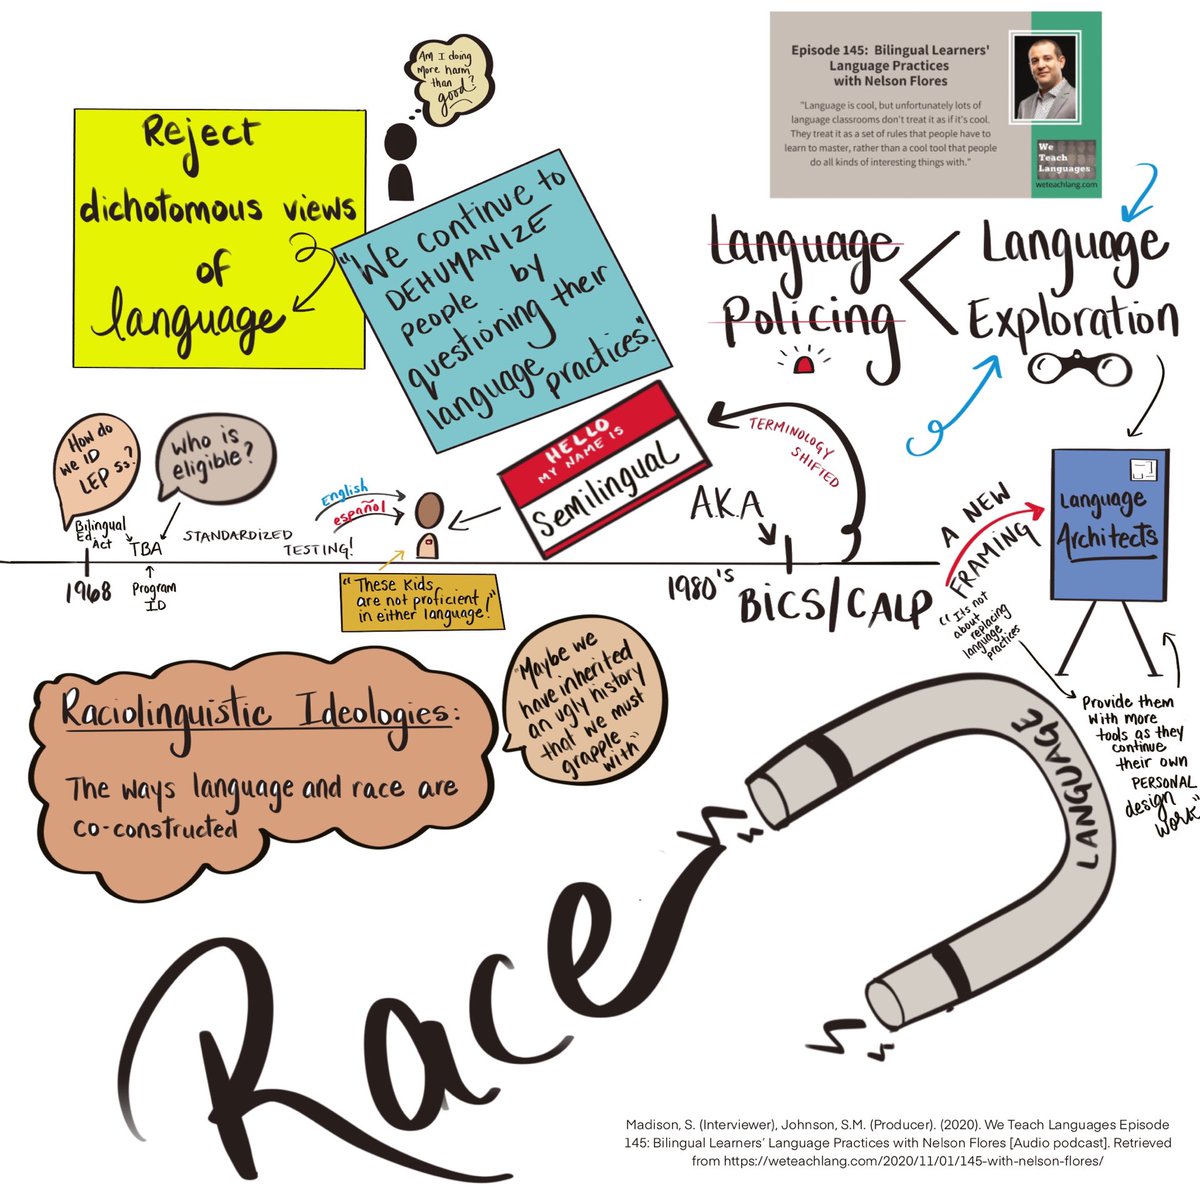 Am I doing
more harm
than
good?
Reject
dichotomous views
of
language
"We continue to
DEHUMANIZE
people by
questioning their
language
practices."
Episode 145: Bilingual Learners'
Language Practices
with Nelson Flores
"Language is cool, but unfortunately lots of
language classrooms don't treat it as if it's cool.
They treat it as a set of rules that people have to
learn to master, rather than a cool tool that people
do all kinds of interesting things with."
We
Teach
Languages
weteachlang.com
Language
Policing
<
Language
Exploration
How do
we ID
LEP Ss.?
Who is
eligible?
Bilingual
Ed Act
1968
TBA
Program
ID
STANDARDIZED
TESTING!
English
español
"These kids
are not proficient
in either language!"
HELLO
MY NAME IS
Semilingual
A.K.A
TERMINOLOGY
SHIFTED
1980's
BICS/CALP
A NEW
FRAMING
Language
Architects
"It's not
about
replacing
language
practices
Provide them
with more
tools as they
continue
their own
PERSONAL
design
work"
Raciolinguistic Ideologies:
The ways language and race are
co-constructed
"Maybe we
have inherited
an ugly history
that we must
grapple
with"
LANGUAGE
Race
Madison, S. (Interviewer), Johnson, S.M. (Producer). (2020). We Teach Languages Episode
145: Bilingual Learners' Language Practices with Nelson Flores [Audio podcast]. Retrieved
from https://weteachlang.com/2020/11/01/145-with-nelson-flores/